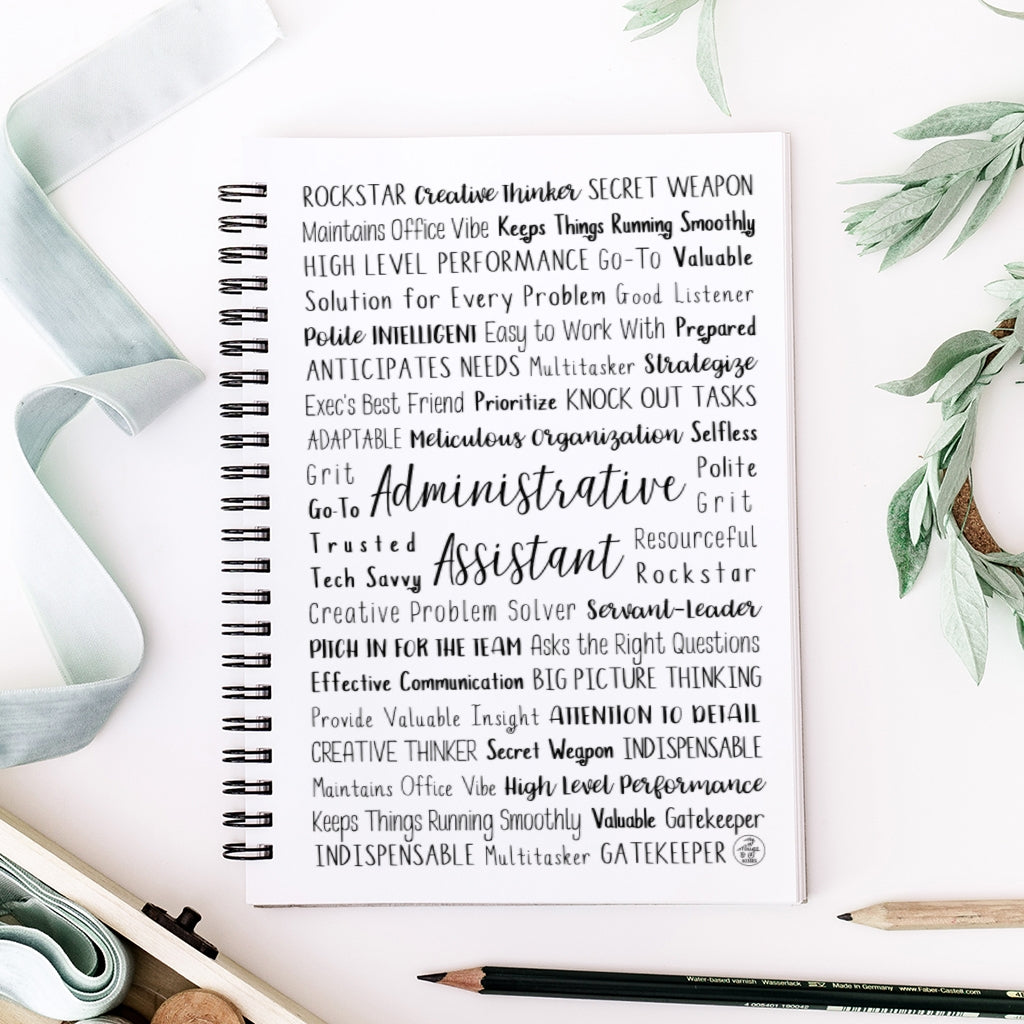 ROCKSTAR Creative Thinker SECRET WEAPON
Maintains Office Vibe Keeps Things Running Smoothly
HIGH LEVEL PERFORMANCE Go-To Valuable
Solution for Every Problem Good Listener
Polite INTELLIGENT Easy to Work With Prepared
ANTICIPATES NEEDS Multitasker Strategize
Exec's Best Friend Prioritize KNOCK OUT TASKS
ADAPTABLE Meticulous Organization Selfless
Grit Polite
Go-To Administrative Grit
Trusted Resourceful
Tech Savvy Assistant Rockstar
Creative Problem Solver Servant-Leader
PITCH IN FOR THE TEAM Asks the Right Questions
Effective Communication BIG PICTURE THINKING
Provide Valuable Insight ATTENTION TO DETAIL
CREATIVE THINKER Secret Weapon INDISPENSABLE
Maintains Office Vibe High Level Performance
Keeps Things Running Smoothly Valuable Gatekeeper
INDISPENSABLE Multitasker GATEKEEPER
Water-based varnish Wasserlack Made in Germany www.Faber-Castell.com